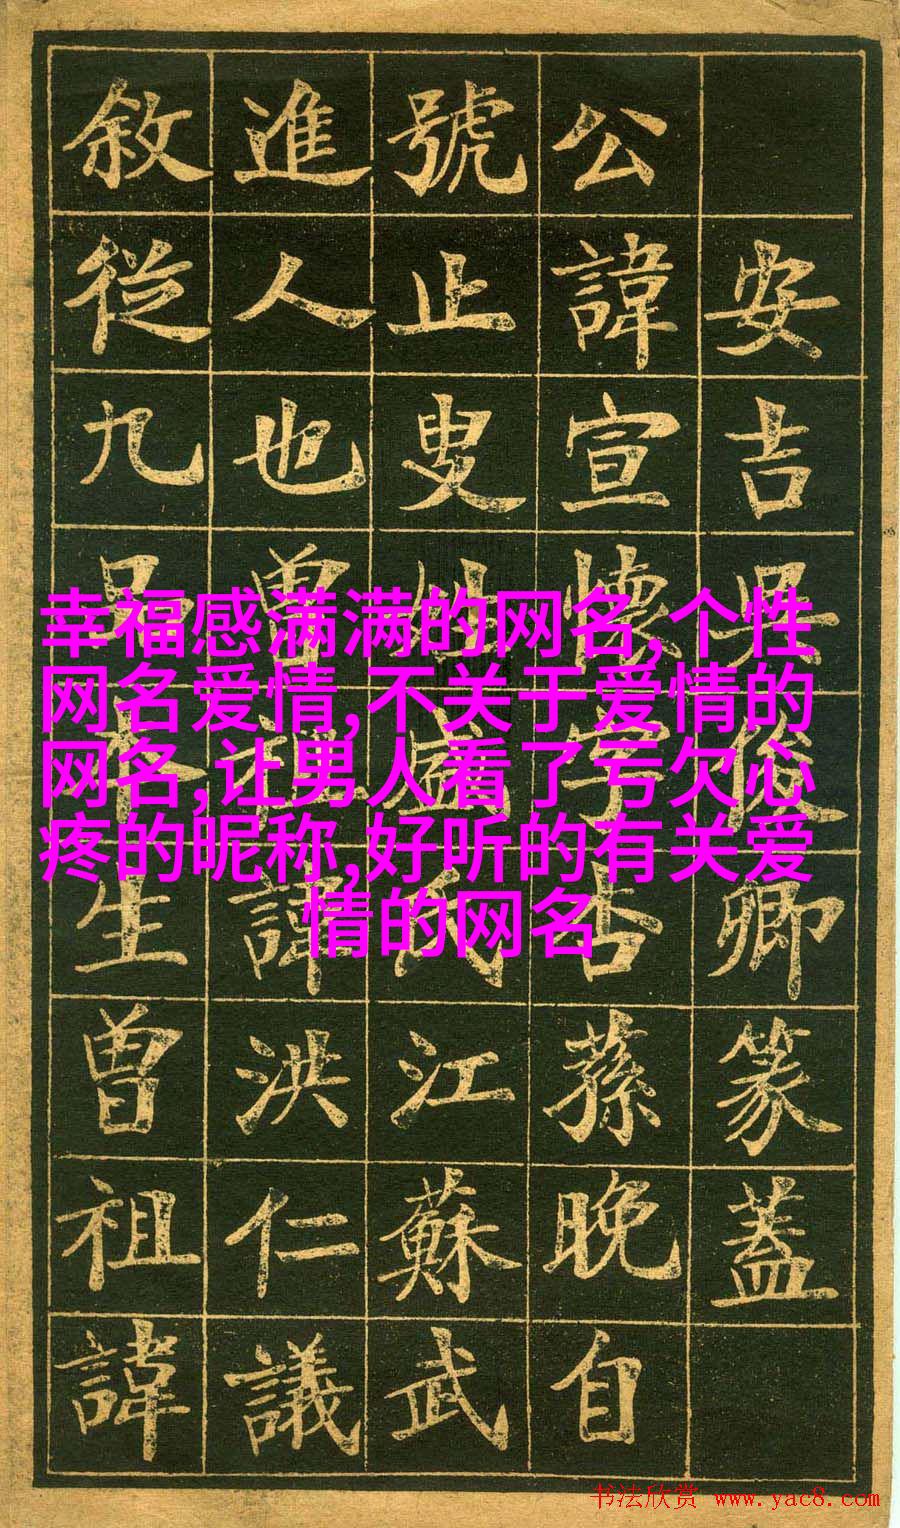 安吉吳俊卿篆蓋
公諱宣懷字杏蓀晚自
號止叟盛氏江蘇武
進人也曾祖諱洪仁議
敘從九品本生曾祖諱
幸福感满满的网名,个性
网名爱情,不关于爱情的
网名,让男人看了亏欠心
疼的昵称,好听的有关爱
情的网名
书法欣赏 www.yac8.com